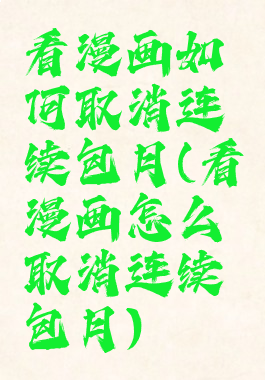 看漫画如
何取消连
续包月(看
漫画怎么
取消连续
包月)